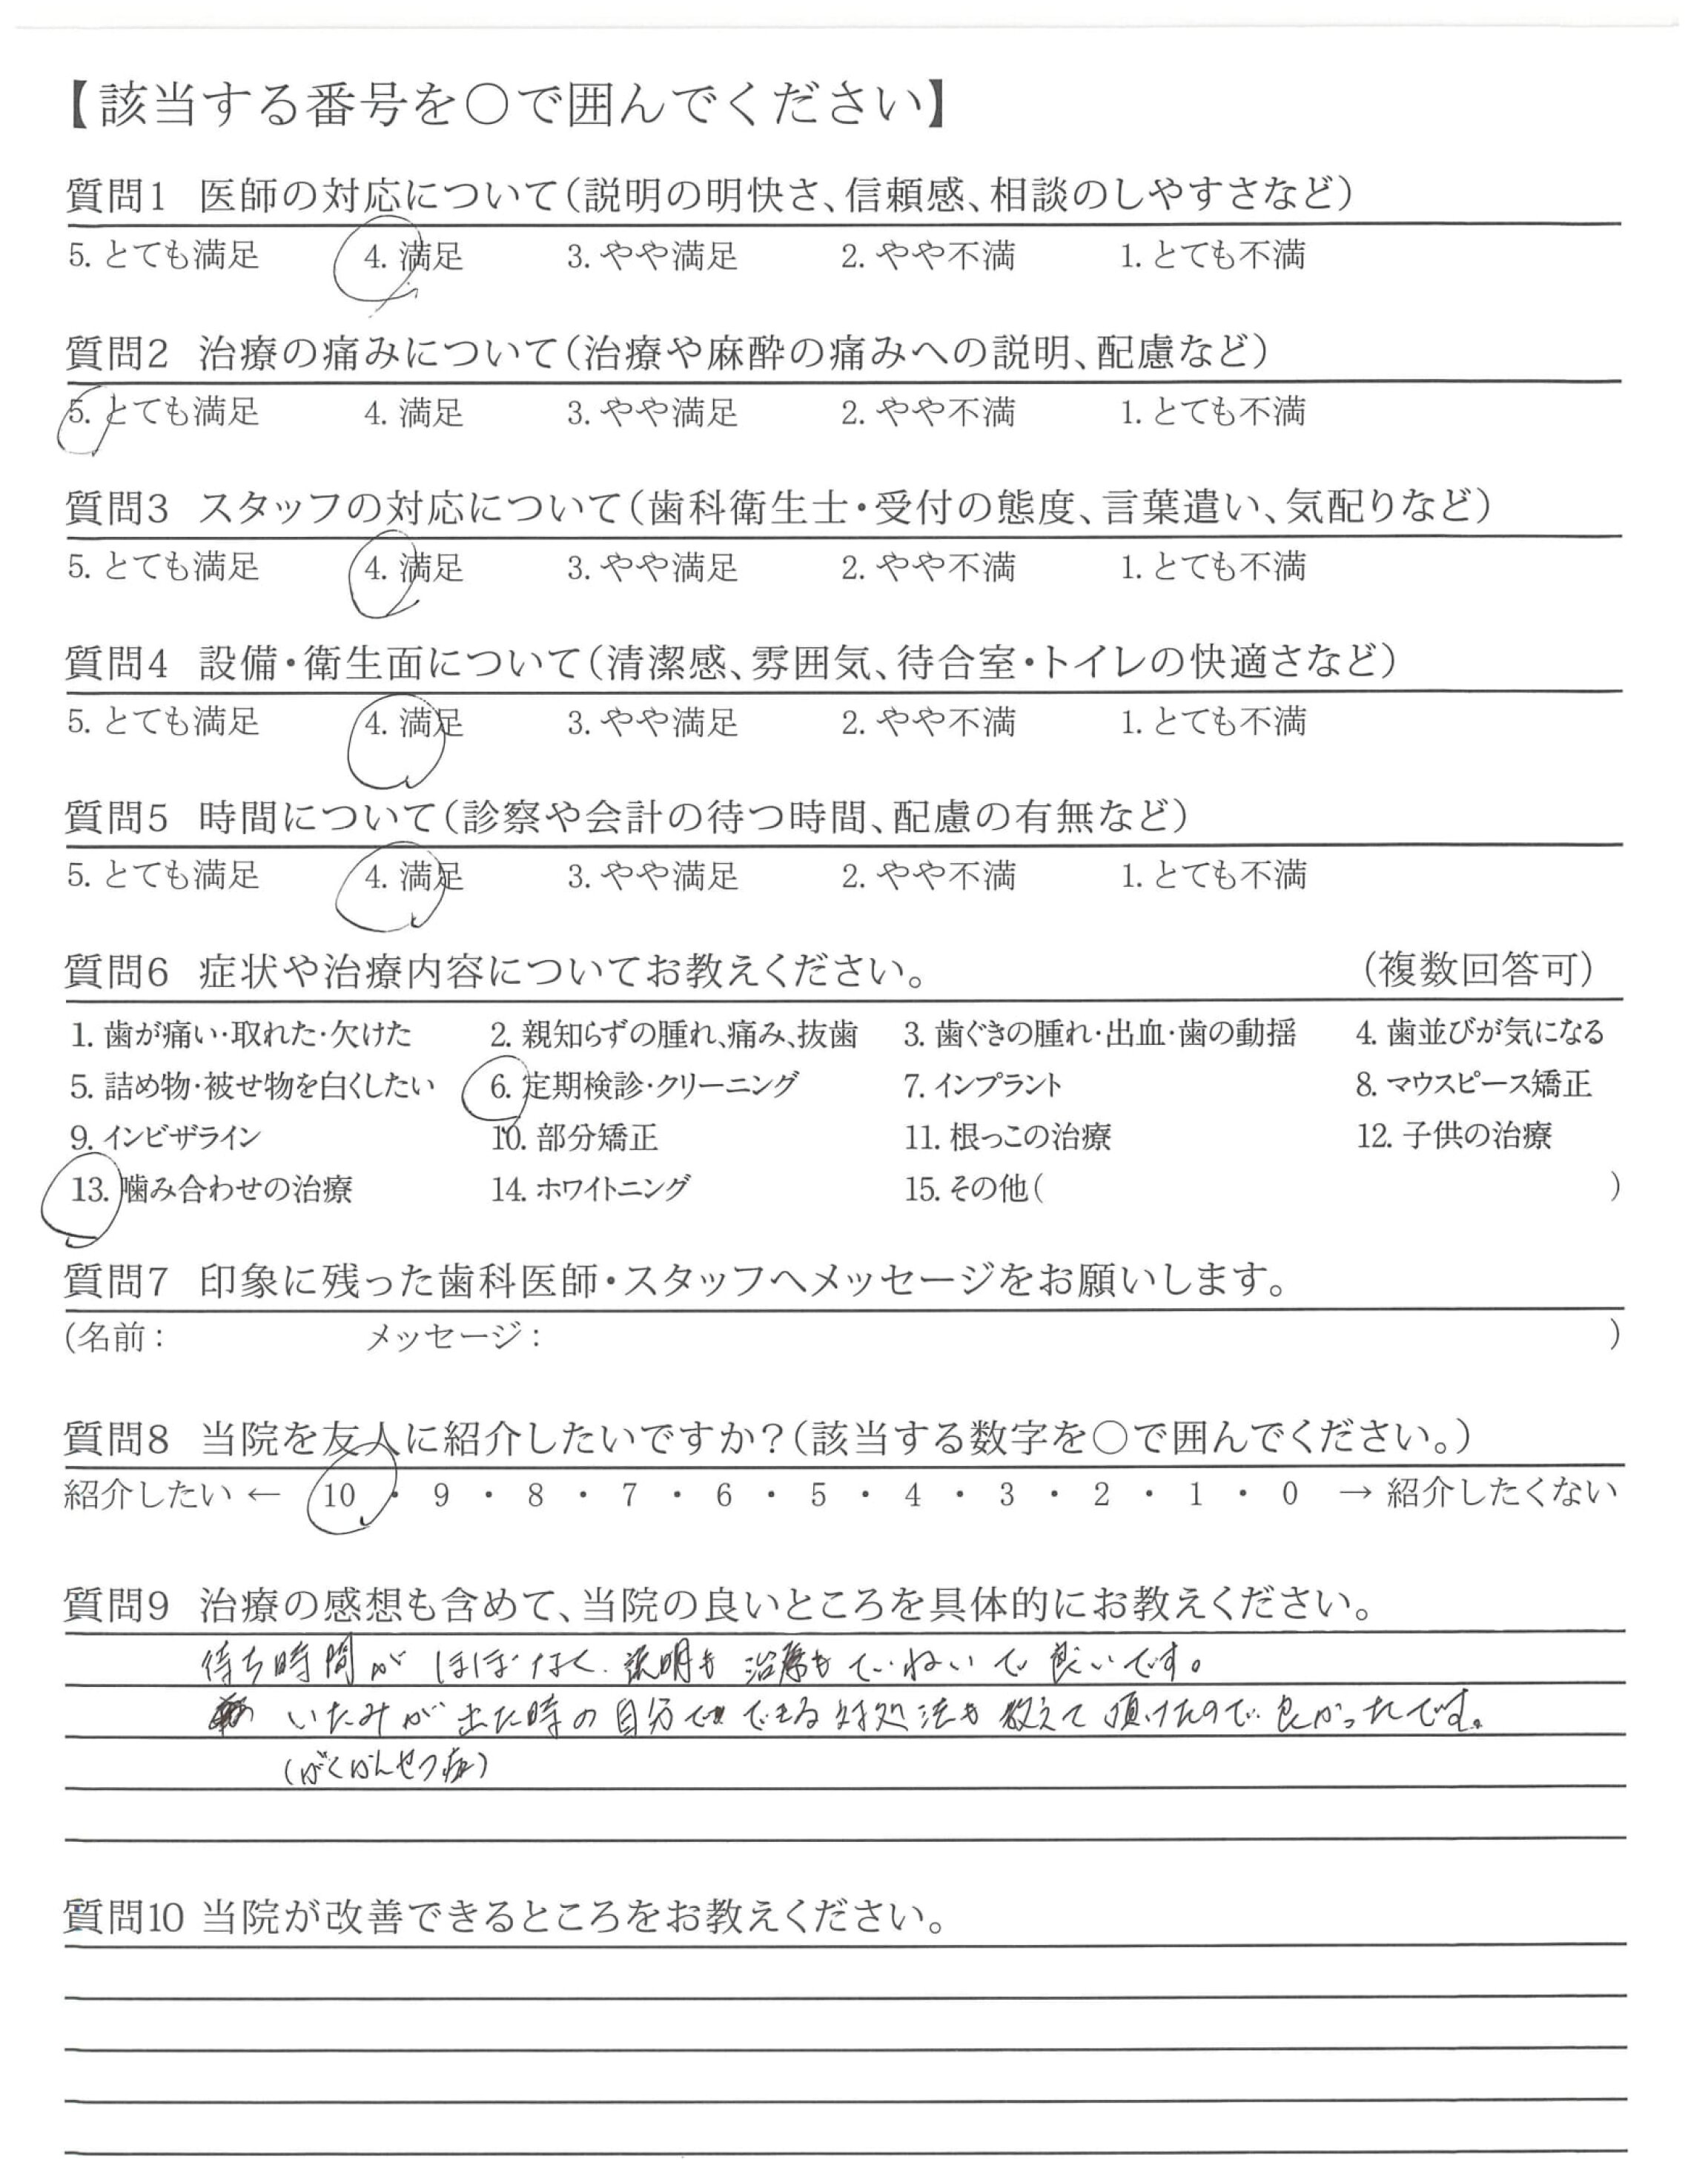 【該当する番号を○で囲んでください】
質問1 医師の対応について(説明の明快さ、信頼感、相談のしやすさなど)
5. とても満足 4. 満足 3. やや満足 2. やや不満 1. とても不満
質問2 治療の痛みについて(治療や麻酔の痛みへの説明、配慮など)
5. とても満足 4. 満足 3. やや満足 2. やや不満 1. とても不満
質問3 スタッフの対応について(歯科衛生士・受付の態度、言葉遣い、気配りなど)
5. とても満足 4. 満足 3. やや満足 2. やや不満 1. とても不満
質問4 設備・衛生面について(清潔感、雰囲気、待合室・トイレの快適さなど)
5. とても満足 4. 満足 3. やや満足 2. やや不満 1. とても不満
質問5 時間について(診察や会計の待つ時間、配慮の有無など)
5. とても満足 4. 満足 3. やや満足 2. やや不満 1. とても不満
質問6 症状や治療内容についてお教えください。 (複数回答可)
1. 歯が痛い・取れた・欠けた 2. 親知らずの腫れ、痛み、抜歯 3. 歯ぐきの腫れ・出血・歯の動揺 4. 歯並びが気になる
5. 詰め物・被せ物を白くしたい 6. 定期検診・クリーニング 7. インプラント 8. マウスピース矯正
9. インビザライン 10. 部分矯正 11. 根っこの治療 12. 子供の治療
13. 噛み合わせの治療 14. ホワイトニング 15. その他( )
質問7 印象に残った歯科医師・スタッフへメッセージをお願いします。
(名前: メッセージ: )
質問8 当院を友人に紹介したいですか?(該当する数字を○で囲んでください。)
紹介したい ← 10 ・ 9 ・ 8 ・ 7 ・ 6 ・ 5 ・ 4 ・ 3 ・ 2 ・ 1 ・ 0 → 紹介したくない
質問9 治療の感想も含めて、当院の良いところを具体的にお教えください。
待ち時間が ほぼなく、説明も 治療も ていねいで 良いです。
いたみが 出た時の 自分で できる 対処法も 教えて 頂けたので、良かったです。
(がくかんせつ症)
質問10 当院が改善できるところをお教えください。